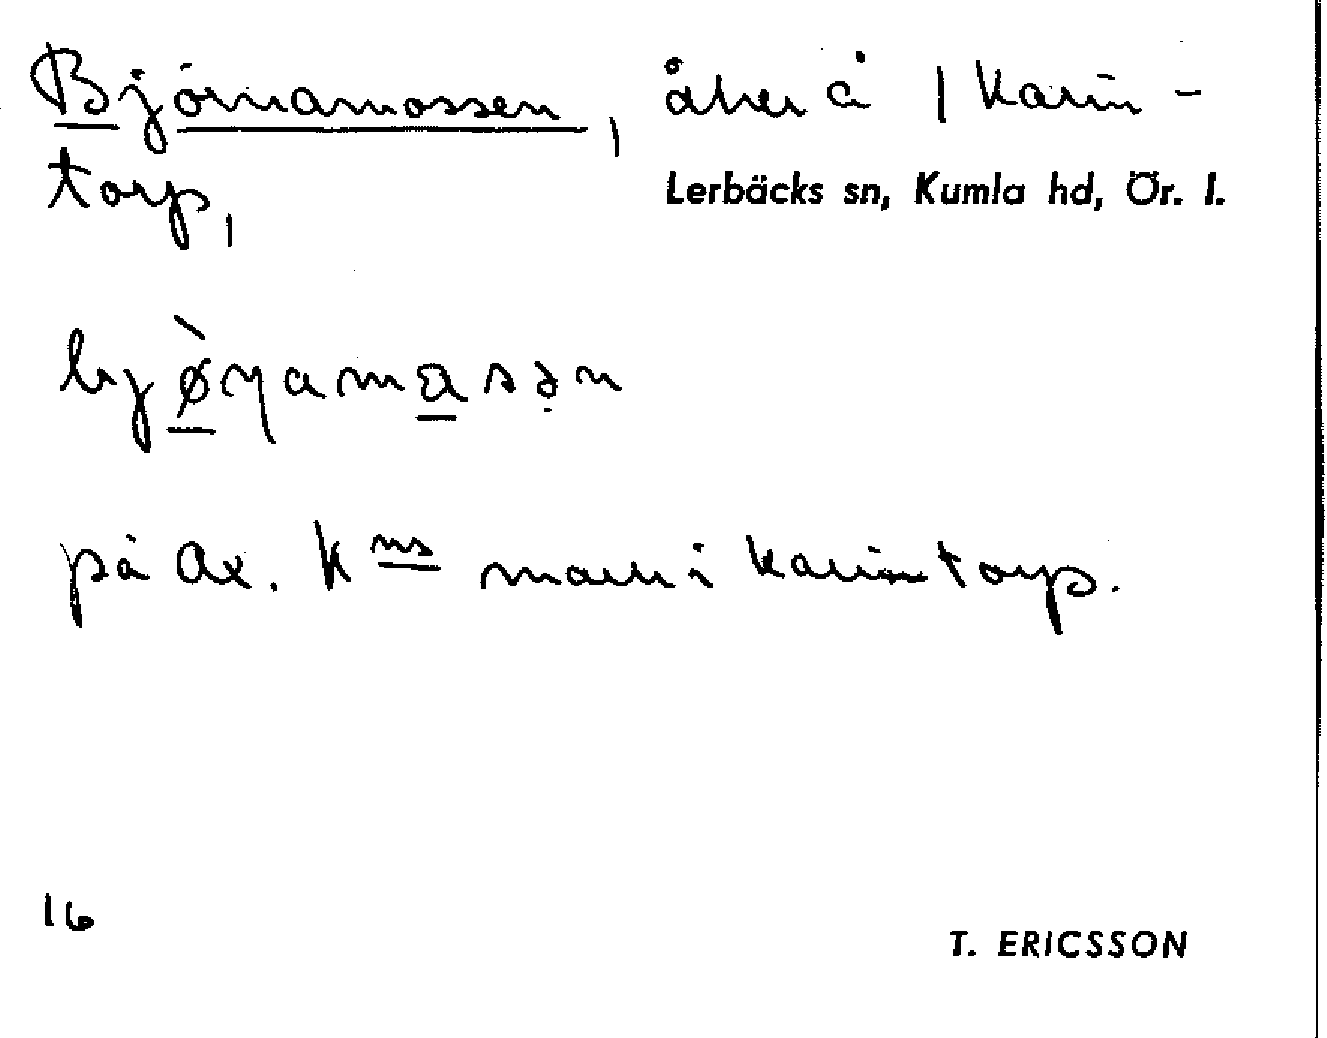 Björnamossen, åker å 1 Karin-
torp,
Lerbäcks sn, Kumla hd, Ör. l.
på Ax. K ns mark i Karintorp.
16
T. ERICSSON